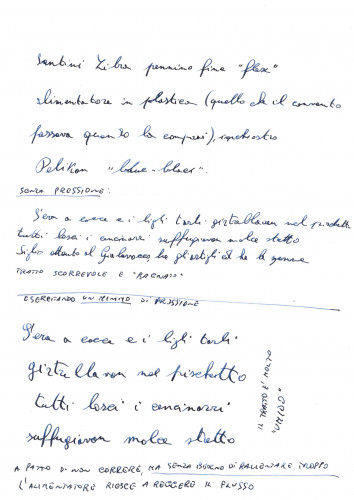 Santini Libra pennino fine "flex"
alimentatore in plastica (quello che il convento
passava quando la comprai), inchiostro
Pelikan "blue-black".
SENZA PRESSIONE:
S'era a cocce e i ligli tarli girtrellavan nel pischetto
tutti losci i cincinarri suffuggiavan molce stetto
Figlio attento al Giabervocco, ha gli artigli ed ha le zanne
TRATTO SCORREVOLE E "BAGNATO"
ESERCITANDO UN MINIMO DI PRESSIONE
S'era a cocce e i ligli tarli
girtrellavan nel pischetto
tutti losci i cincinarri
suffuggiavan molce stetto
IL TRATTO E' MOLTO
"UMIDO"
A PATTO DI NON CORRERE, MA SENZA BISOGNO DI RALLENTARE TROPPO
L'ALIMENTATORE RIESCE A REGGERE IL FLUSSO